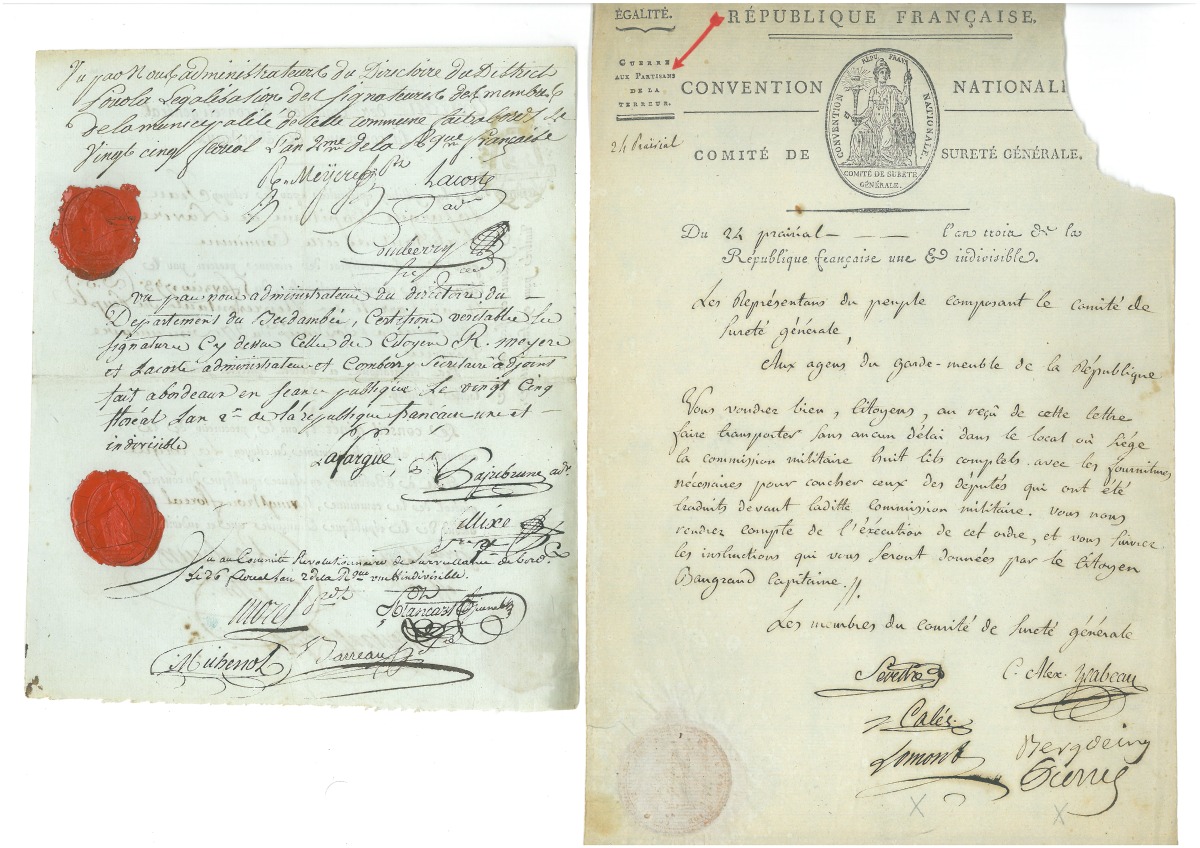 Vu par Nous administrateurs du Directoire du District
Pour la Legalisation des signatures des membres
de la municipalité de cette commune fait a Bordx le
Vingt cinq floréal L'an 2me de la Rque française
Lacoste
adm
vu par nous administrateurs du directoire du
Departement du Becdambés, Certifions veritable les
signature Cy dessus Celle des Citoyens R. moyere
et Lacoste administrateur et Comberry Secretaire adjoint
fait a bordeaux en seance publique Le vingt Cinq
floréal Lan 2me de la republique francaise une et
indivisible
Lafargue,
Vu au Committé Revolutionnaire de Surveillance de Bordx
Le 26 floreal lan 2 de la Rque une & indivisible.
morel
Barreau
ÉGALITÉ.
RÉPUBLIQUE FRANÇAISE.
GUERRE
AUX PARTISANS
DE LA
TERREUR.
CONVENTION NATIONALE
RÉPU. FRANÇ.
CONVENTION NATIONALE.
COMITÉ DE SURETÉ
GÉNÉRALE.
24 Prairial
COMITÉ DE SURETÉ GÉNÉRALE.
Du 24 prairial l'an trois de la
République française une & indivisible.
Les Représentans du peuple composant le comité de
sureté générale,
Aux agens du garde-meuble de la République
Vous voudrez bien, Citoyens, au reçu de cette lettre
faire transporter sans aucun délai dans le local où siége
la commission militaire huit lits complets avec les fournitures
nécessaires pour coucher ceux des députés qui ont été
traduits devant laditte commission militaire. Vous nous
rendrez compte de l'éxécution de cet ordre, et vous suivrez
les instructions qui vous seront données par le Citoyen
Baugrand Capitaine.
Les membres du comité de sureté générale
Sevestre
C. Alex. Ysabeau
Calès
Bergoeing
Lomont
Pierret